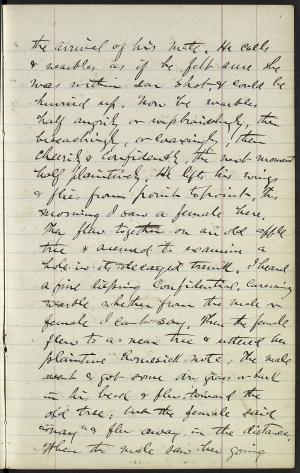 the arrival of his mate. He calls
& warbles as if he felt sure she
was within ear shot & could be
hurried up. Now he warbles
half angrily or upbraidingly, then
beseechingly, or coaxingly, then
cheerily & confidently, the next moment
half plaintively. He lifts his wings
& flies from point to point, this
morning I saw a female here,
They flew together on an old apple
tree & seemed to examine a
hole in its decayed trunk, I heard
a fine lisping confidential, caressing
warble whether from the male or
female I cant say. Then the female
flew to a near tree & uttered her
plaintive homesick note, The male
went & got some dry grass or bark
in his beak & flew toward the
old tree; but the female said
"nay" & flew away in the distance.
When the male saw her going